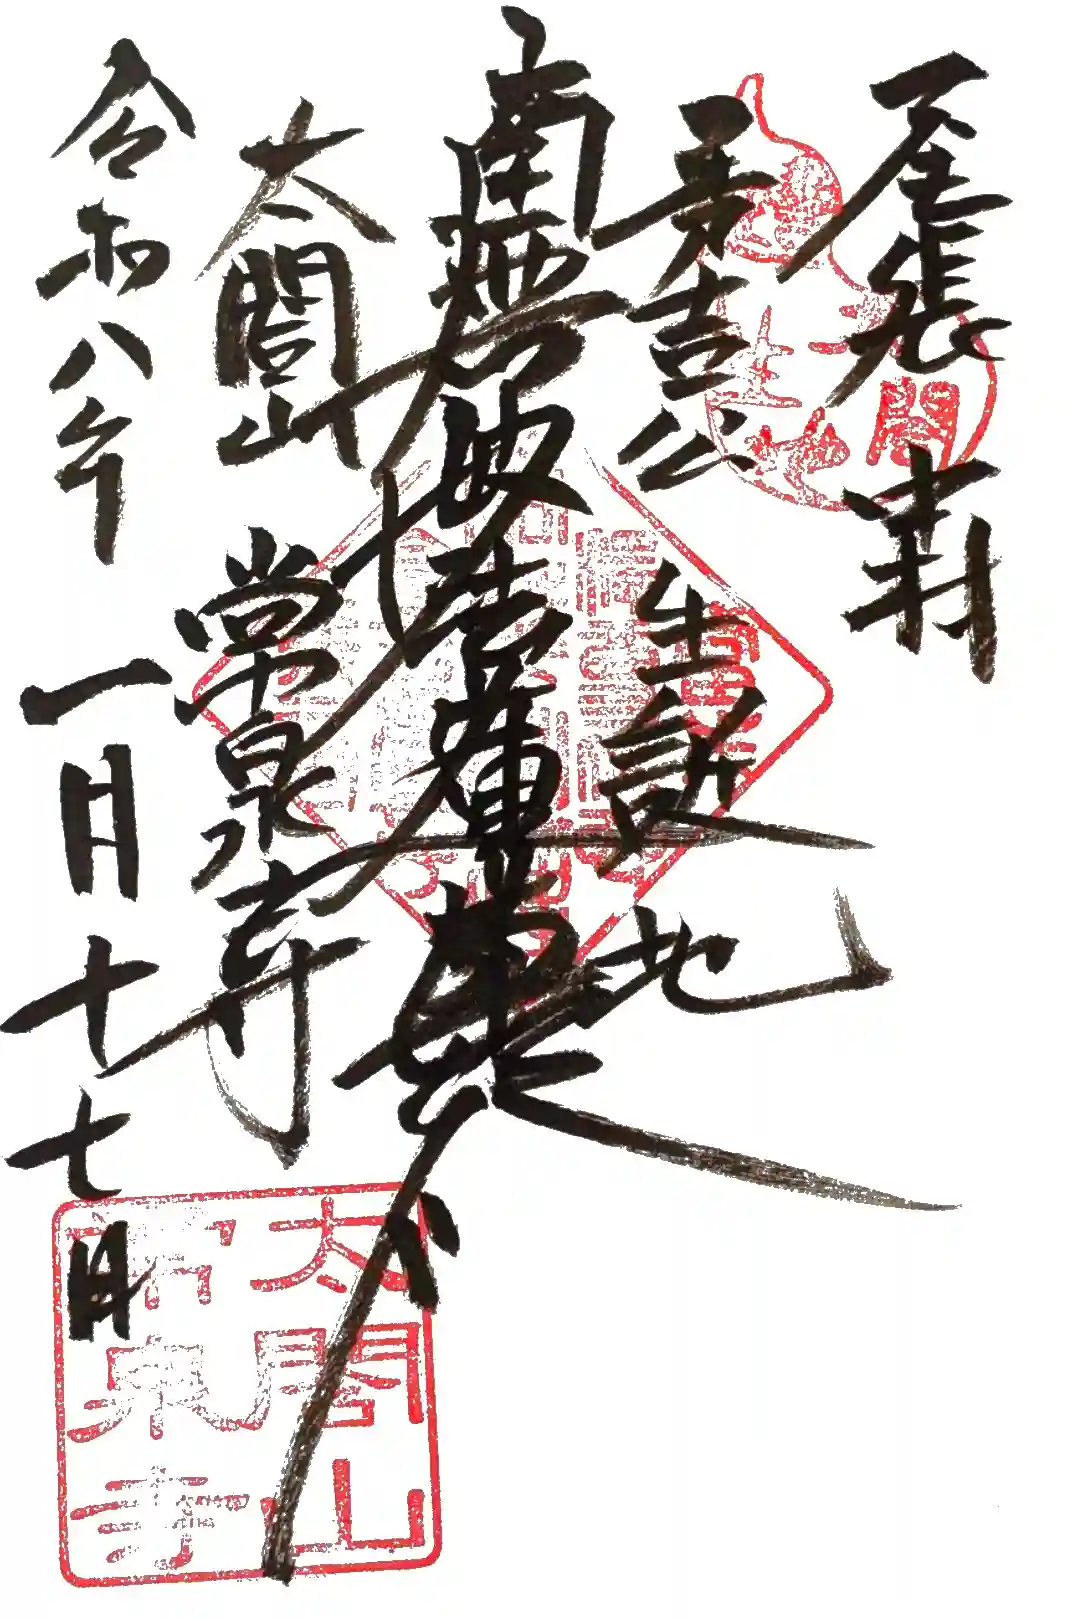 尾張中村
秀吉公生誕地
南無妙法蓮華経
太閤山
常泉寺
令和八年一月十七日
太閤山
常泉寺